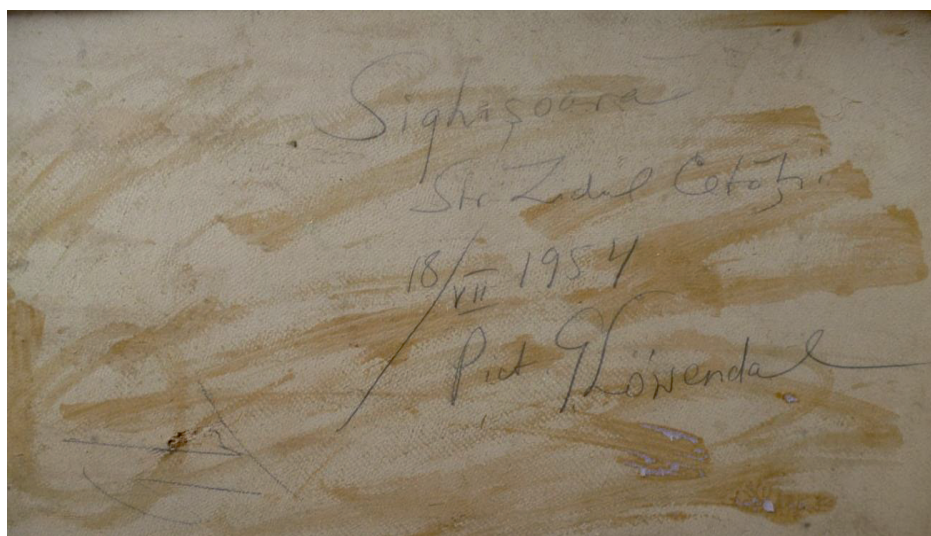 Sighişoara
Str. Zidul Cetăţii
18/VII 1954
Pict. G Löwendal